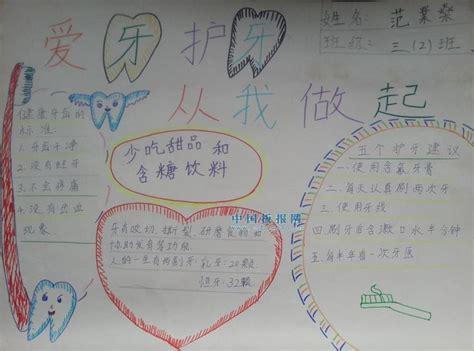 爱牙护牙
从我做起
姓名：范
班级：三（2）班
健康牙齿的
标准：
1.牙齿干净
2.没有蛀牙
3.不会疼痛
4.没有出血
现象
少吃甜品和
含糖饮料
牙有咬切、撕裂、研磨食物和
协助发音等功能
人的一生有两副牙：乳牙：20颗
恒牙：32颗
五个护牙建议
一.使用含氟牙膏
二.每天认真刷两次牙
三.使用牙线
四.刷牙后含漱口水半分钟
五.每半年看一次牙医
中国板报网